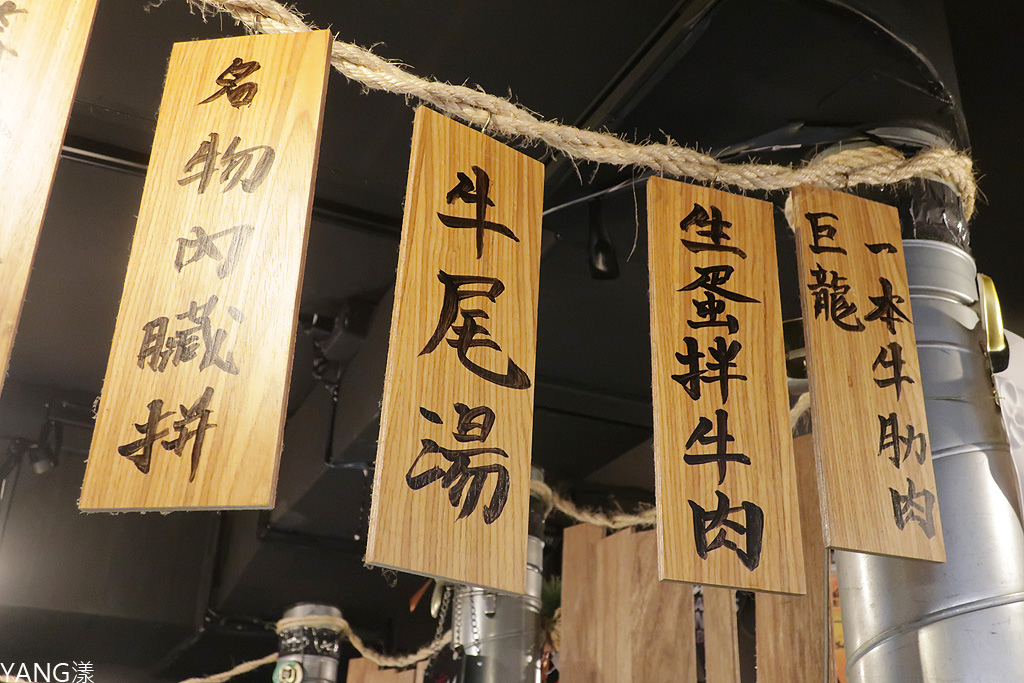 名物内臓拼
牛尾湯
生蛋拌牛肉
巨龍
一本牛肋肉
YANG漾